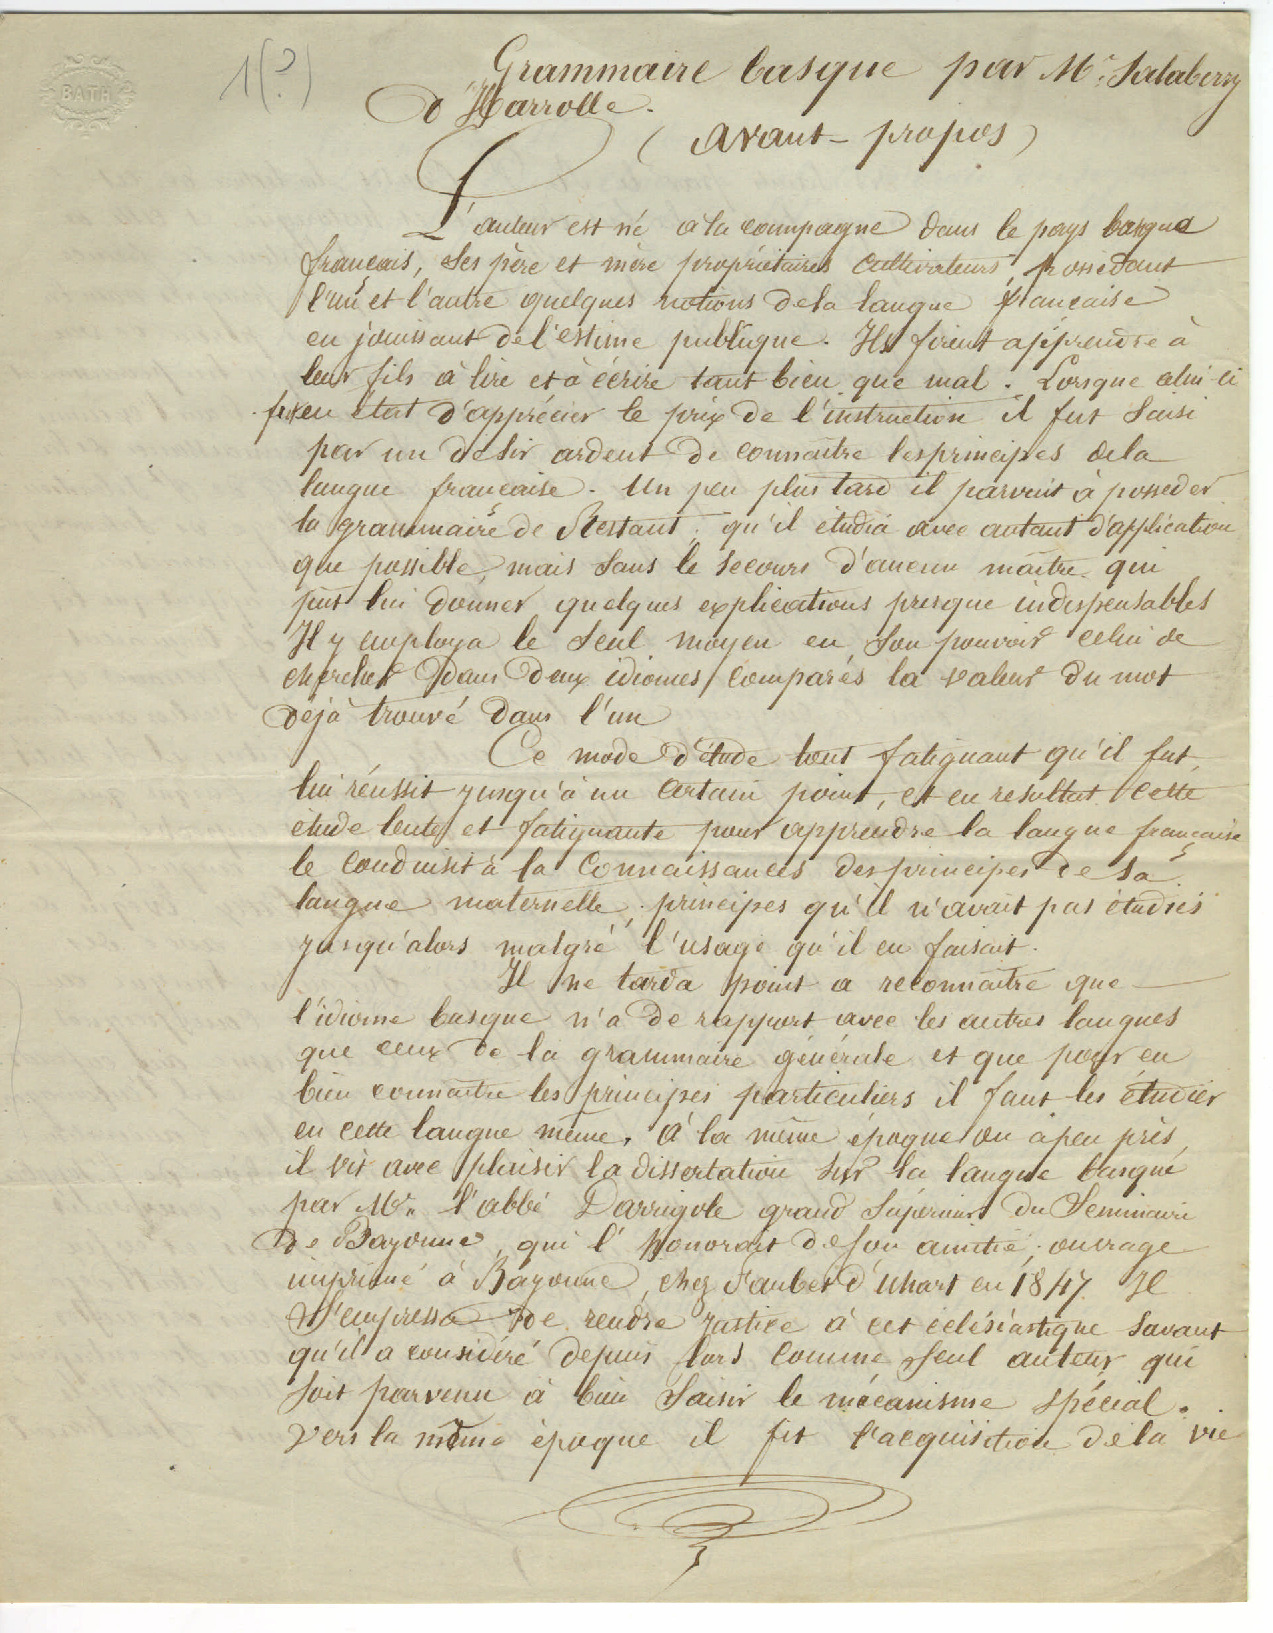 BATH
1(?)
Grammaire basque par Mr. Salaberry
d'Ibarrolle.
(avant-propos)
L'auteur est né a la campagne dans le pays basque
français, ses père et mère propriétaires cultivateurs possedant
l'un et l'autre quelques notions dela langue française
en jouissant de l'estime publique. Ils firent apprendre à
leur fils à lire et à écrire tant bien que mal. Lorsque celui-ci
fut en état d'apprécier le prix de l'instruction il fut saisi
par un désir ardent de connaitre les principes dela
langue française. Un peu plus tard il parvint à posseder
la grammaire de Restaut, qu'il étudia avec autant d'application
que possible, mais sans le secours d'aucun maître qui
put lui donner quelques explications presque indispensables
Il y employa le seul moyen en son pouvoir celui de
chercher dans deux idiomes comparés la valeur du mot
déjà trouvé dans l'un
Ce mode d'étude tout fatiguant qu'il fut,
lui réussit jusqu'à un certain point, et en resultat cette
etude lente et fatiguante pour apprendre la langue française
le conduisit à la connaissances des principes de sa
langue maternelle, principes qu'il n'avait pas étudiés
jusqu'alors malgré l'usage qu'il en faisait.
Il ne tarda point a reconnaitre que
l'idiome basque n'a de rapport avec les autres langues
que ceux de la grammaire générale et que pour en
bien connaitre les principes particuliers il faut les étudier
en cette langue même. à la même époque ou apeu près
il vit avec plaisir la dissertation sur la langue basque
par Mr. l'abbé Darrigole grand Supérieur du Seminaire
de Bayonne, qui l'honorait de son amitié, ouvrage
imprimé à Bayonne, chez Fauber d'uhart en 1847. Il
s'empressa de rendre justice à cet éclésiastique savant
qu'il a considéré depuis lors comme seul auteur qui
soit parvenu à bien saisir le mécanisme spécial.
vers la même époque il fit l'acquisition de la vie